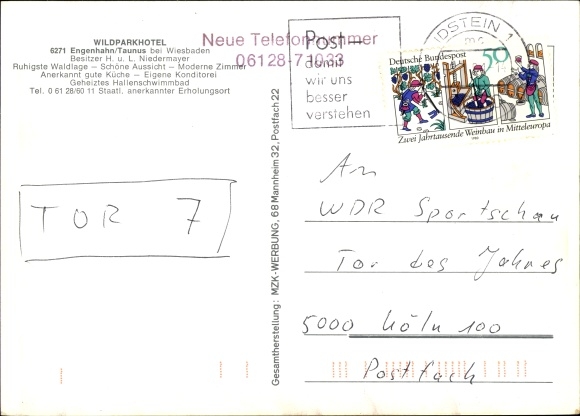 WILDPARKHOTEL
6271 Engenhahn/Taunus bei Wiesbaden
Besitzer H. u. L. Niedermayer
Ruhigste Waldlage – Schöne Aussicht – Moderne Zimmer
Anerkannt gute Küche – Eigene Konditorei
Geheiztes Hallenschwimmbad
Tel. 0 61 28/60 11 Staatl. anerkannter Erholungsort
Neue Telefonnummer
06128-71033
Post –
damit
wir uns
besser
verstehen
IDSTEIN 1
Deutsche Bundespost 50
Zwei Jahrtausende Weinbau in Mitteleuropa
1980
Gesamtherstellung: MZK-WERBUNG, 68 Mannheim 32, Postfach 22
TOR 7
An
WDR Sportschau
Tor des Jahres
5000 Köln 100
Postfach